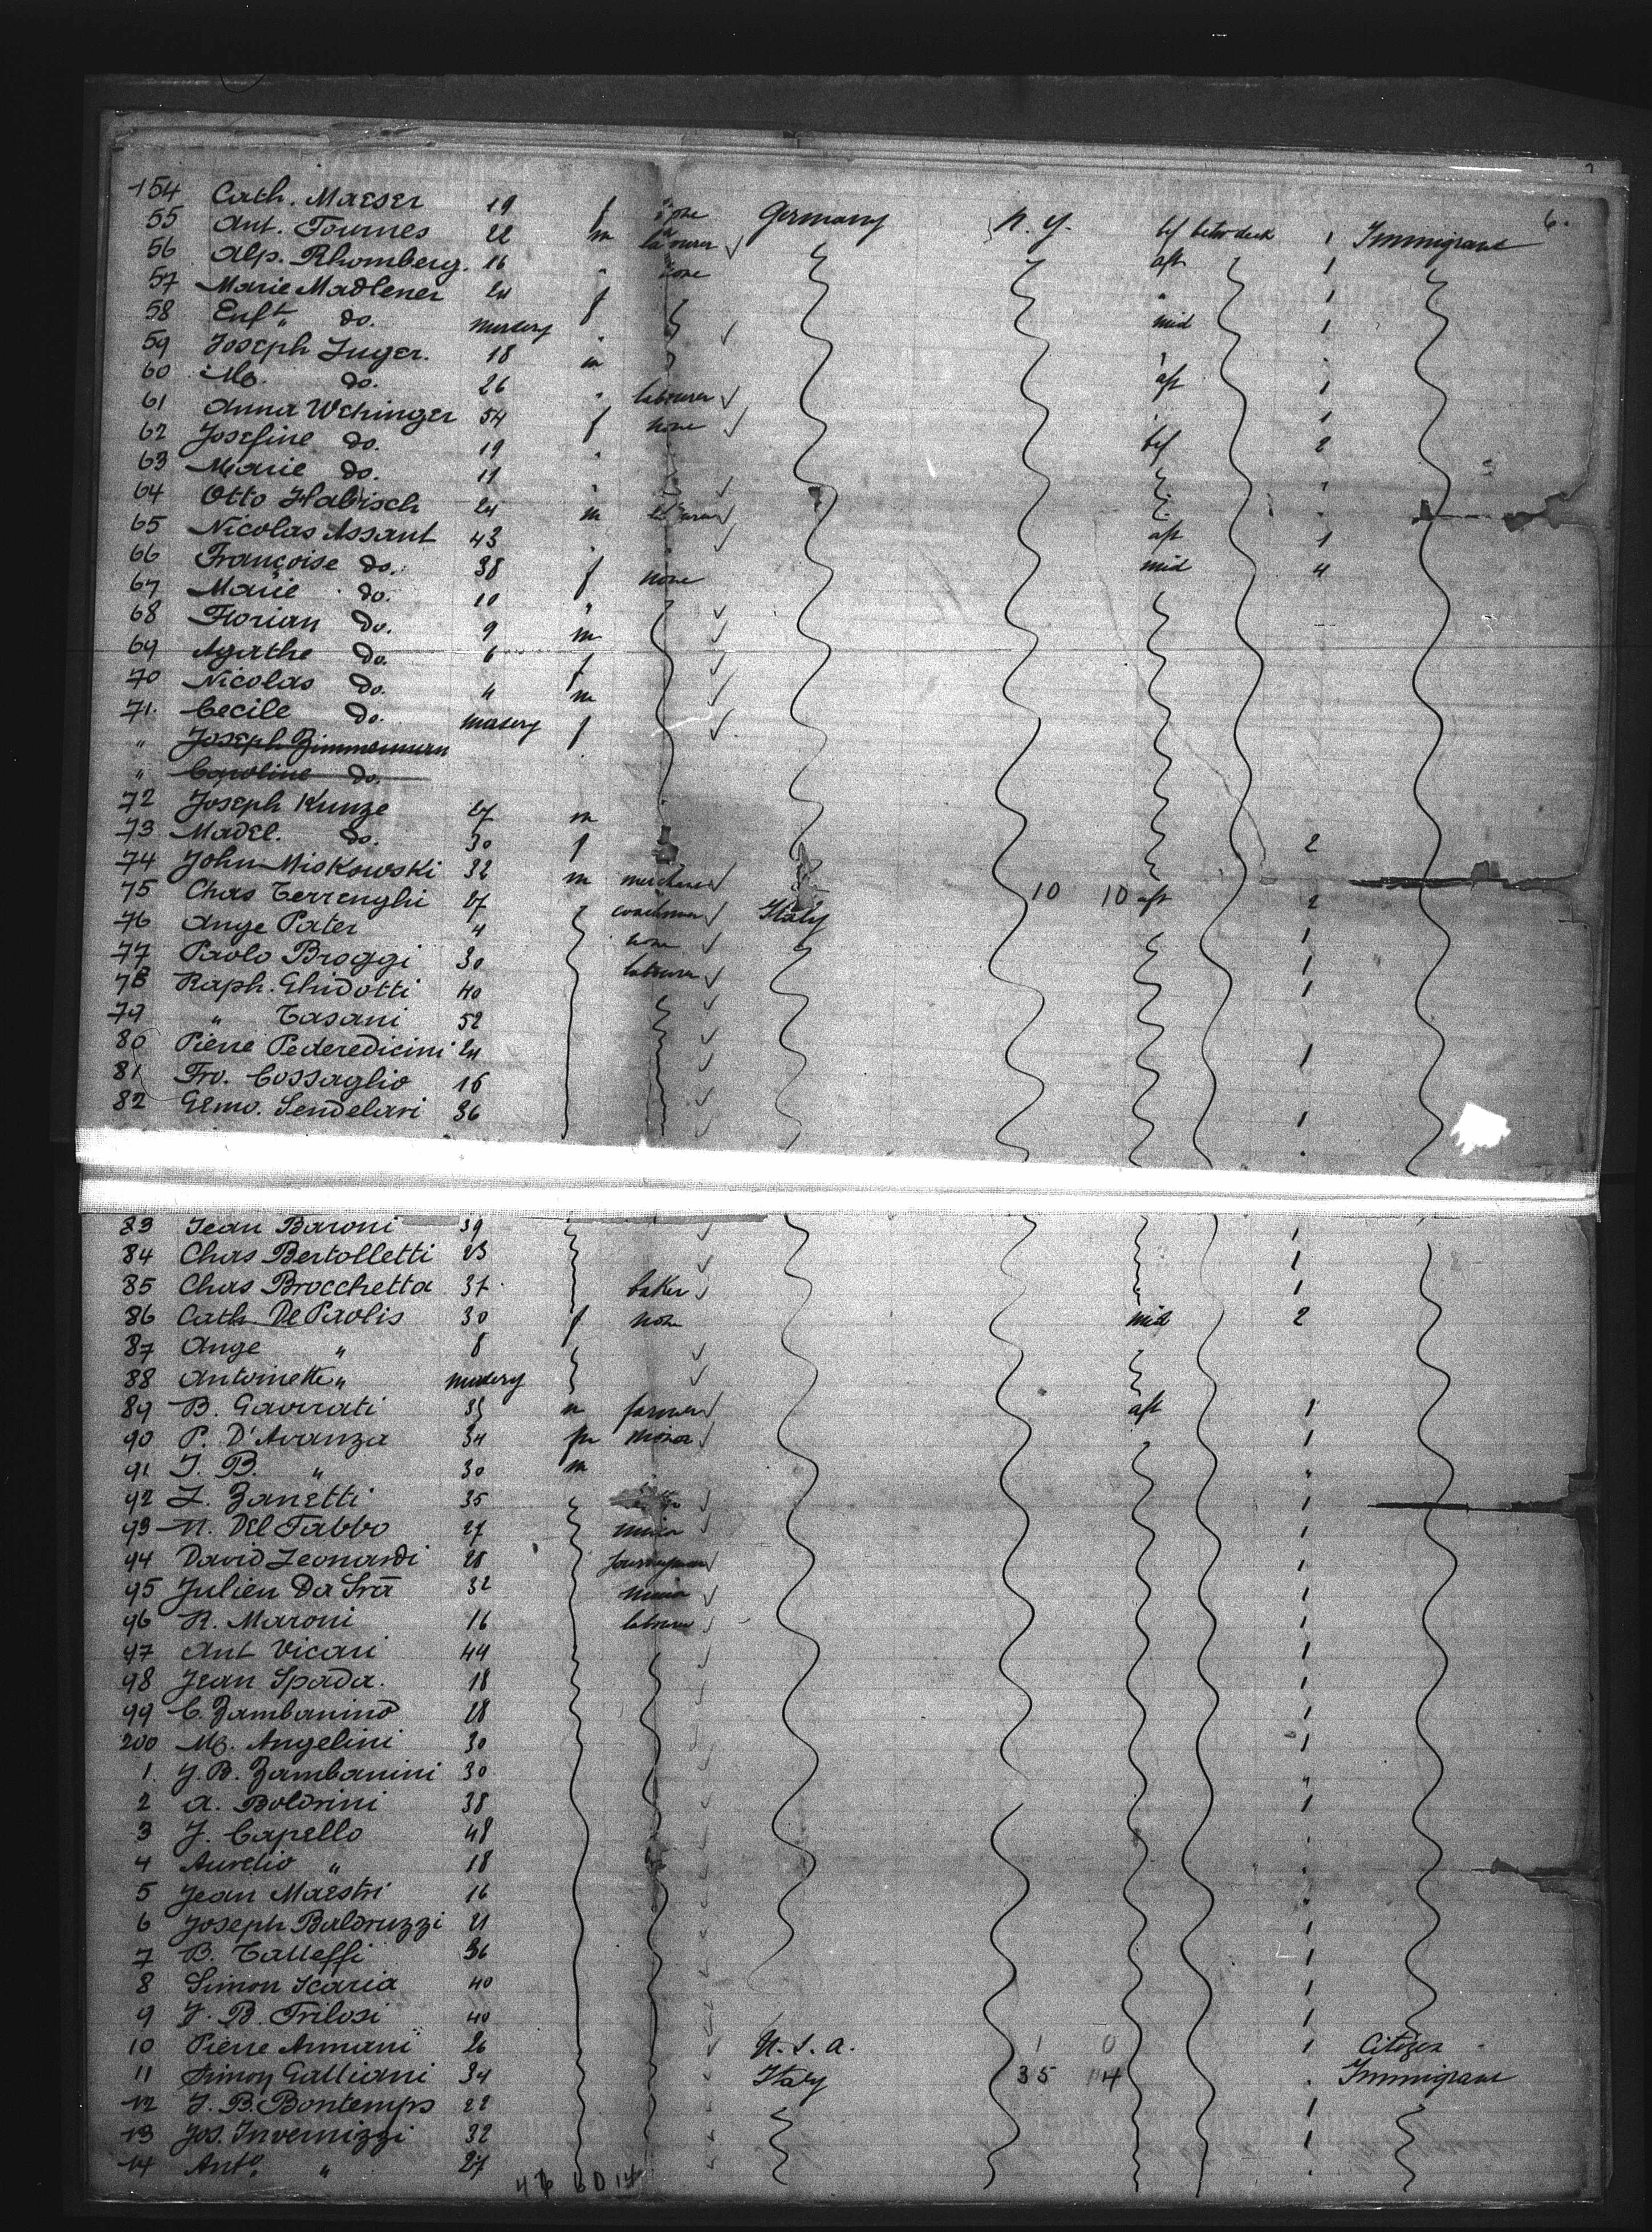 6.
154 Cath. Maeser 19 f none Germany N. Y. bef betw deck 1 Immigrant
55 Ant. Fournes 22 m labourer aft 1
56 Alp. Rhomberg. 16 " none " 1
57 Marie Madlener 24 f mid 1
58 Enft. " do. nursery "
59 Joseph Luger. 18 m aft 1
60 Mo. do. 26 " labourer 1
61 Anna Wehinger 54 f none bef 2
62 Josefine do. 19 "
63 Marie do. 11 "
64 Otto Habisch 24 m labourer aft 1
65 Nicolas Assant 43 " mid 4
66 Françoise do. 38 f none
67 Marie do. 10 "
68 Florian do. 9 m
69 Agathe do. 6 f
70 Nicolas do. 4 m
71. Cecile do. nursery f
" Joseph Zimmermann
" Caroline do.
72 Joseph Kunze 27 m 2
73 Madel. do. 30 f
74 John Miskowski 32 m 10 10 aft 2
75 Chas Terrenghi 27 coachman Italy 1
76 Ange Pater 4 none 1
77 Paolo Broggi 30 labourer 1
78 Raph. Ghidotti 40
79 " Casani 52 1
80 Pierre Pederedicini 24
81 Fro. Cossaglio 16 1
82 Gemo. Sendelari 36 "
83 Jean Baroni 39 1
84 Chas Bertolletti 23 1
85 Chas Brocchetta 37 baker 1
86 Cath De Paolis 30 f none mid 2
87 Ange " 8
88 Antoinette " nursery
89 B. Gavirati 35 m farmer aft 1
90 P. D'Avanza 34 m minor 1
91 J. B. " 30 m "
92 L. Zanetti 35 1
93 N. Del Fabbo 27 minor 1
94 David Leonardi 28 journeyman 1
95 Julien Da Prà 32 minor 1
96 R. Maroni 16 labourer 1
97 Ant Vicari 44 1
98 Jean Spada. 18 1
99 C. Zambanino 28 1
200 Mo. Angelini 30 1
1. J. B. Zambanini 30 "
2 A. Boldrini 38 1
3 J. Capello 48 "
4 Aurelio " 18 "
5 Jean Maestri 16 "
6 Joseph Baldruzzi 21 1
7 B. Talleffi 36 1
8 Simon Icaria 40 1
9 J. B. Trilosi 40 1
10 Pierre Armani 26 U. S. A. 1 0 1 Citizen
11 Simon Galliani 34 Italy 35 14 " Immigrant
12 J. B. Bontemps 22 1
13 Jos. Invernizzi 32 1
14 Anto. " 27 "